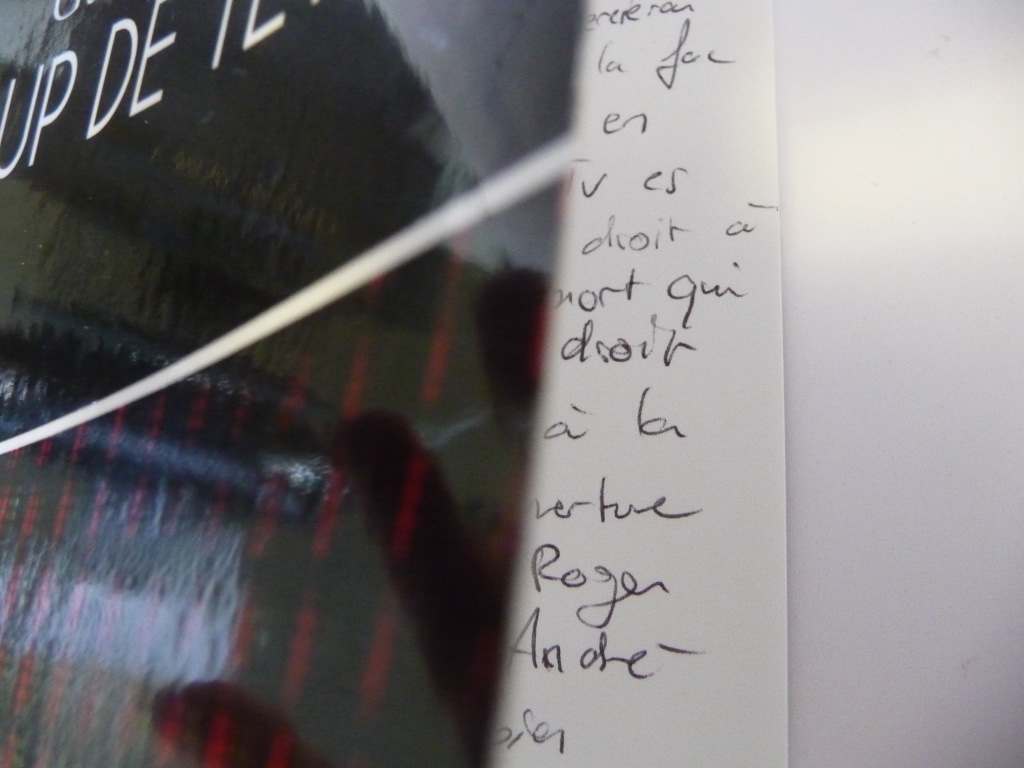 UP DE TE
la fac
en
Tu es
droit à
mort qui
droit
à la
verture
Roger
André